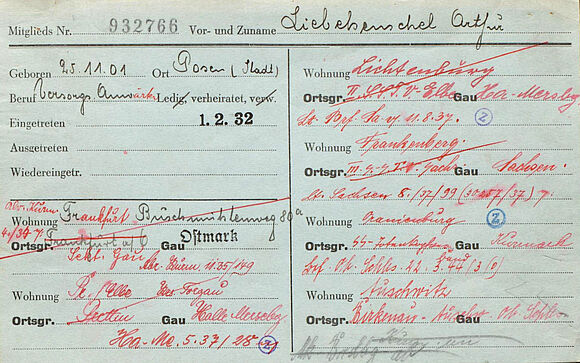 Mitglieds Nr. 932766 Vor- und Zuname Liebehenschel Artur
Geboren 25.11.01 Ort Posen (Stadt)
Beruf Versorgs. Anwärt. Ledig, verheiratet, verw.
Eingetreten 1.2.32
Ausgetreten
Wiedereingetr.
Wohnung Frankfurt Buschmühlenweg 80a
Ortsgr. Frankfurt a/O Gau Ostmark
Sekt. Gau
Abr. Kurm. 11.35/149
Wohnung Pr./Elbe Torgau
Ortsgr. Gau Halle Mersebg
Ha-Me. 5.37/28
Wohnung Lichtenburg
Ortsgr. Elbe Gau Ha-Mersebg
11.8.37. Z
Wohnung Frankenberg.
Ortsgr. III. Gau Sachsen.
Lt. Sachsen 8./37/99
Wohnung Oranienburg Z
Ortsgr. SS- Gau Kurmark
Brf. Ob. Schles. 3.44/3
Wohnung Auschwitz
Ortsgr. Birkenau- Gau Ob. Schles-